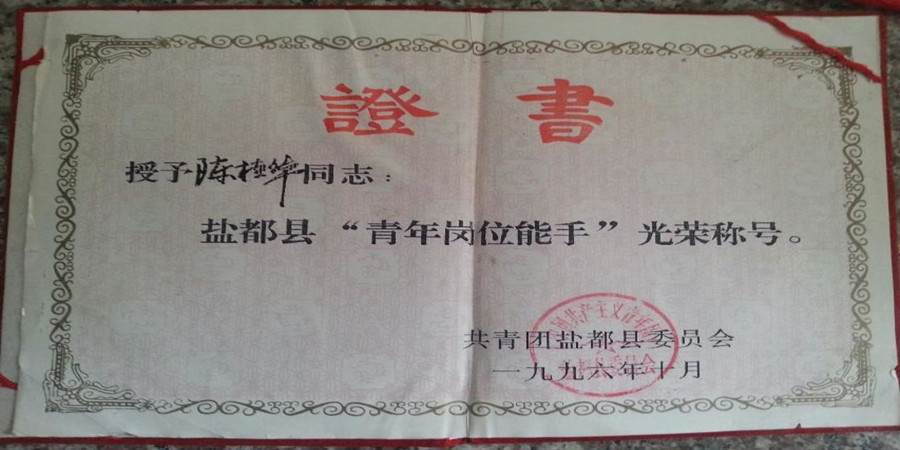 證書
授予陈桂华同志：
盐都县“青年岗位能手”光荣称号。
共青团盐都县委员会
一九九六年十月